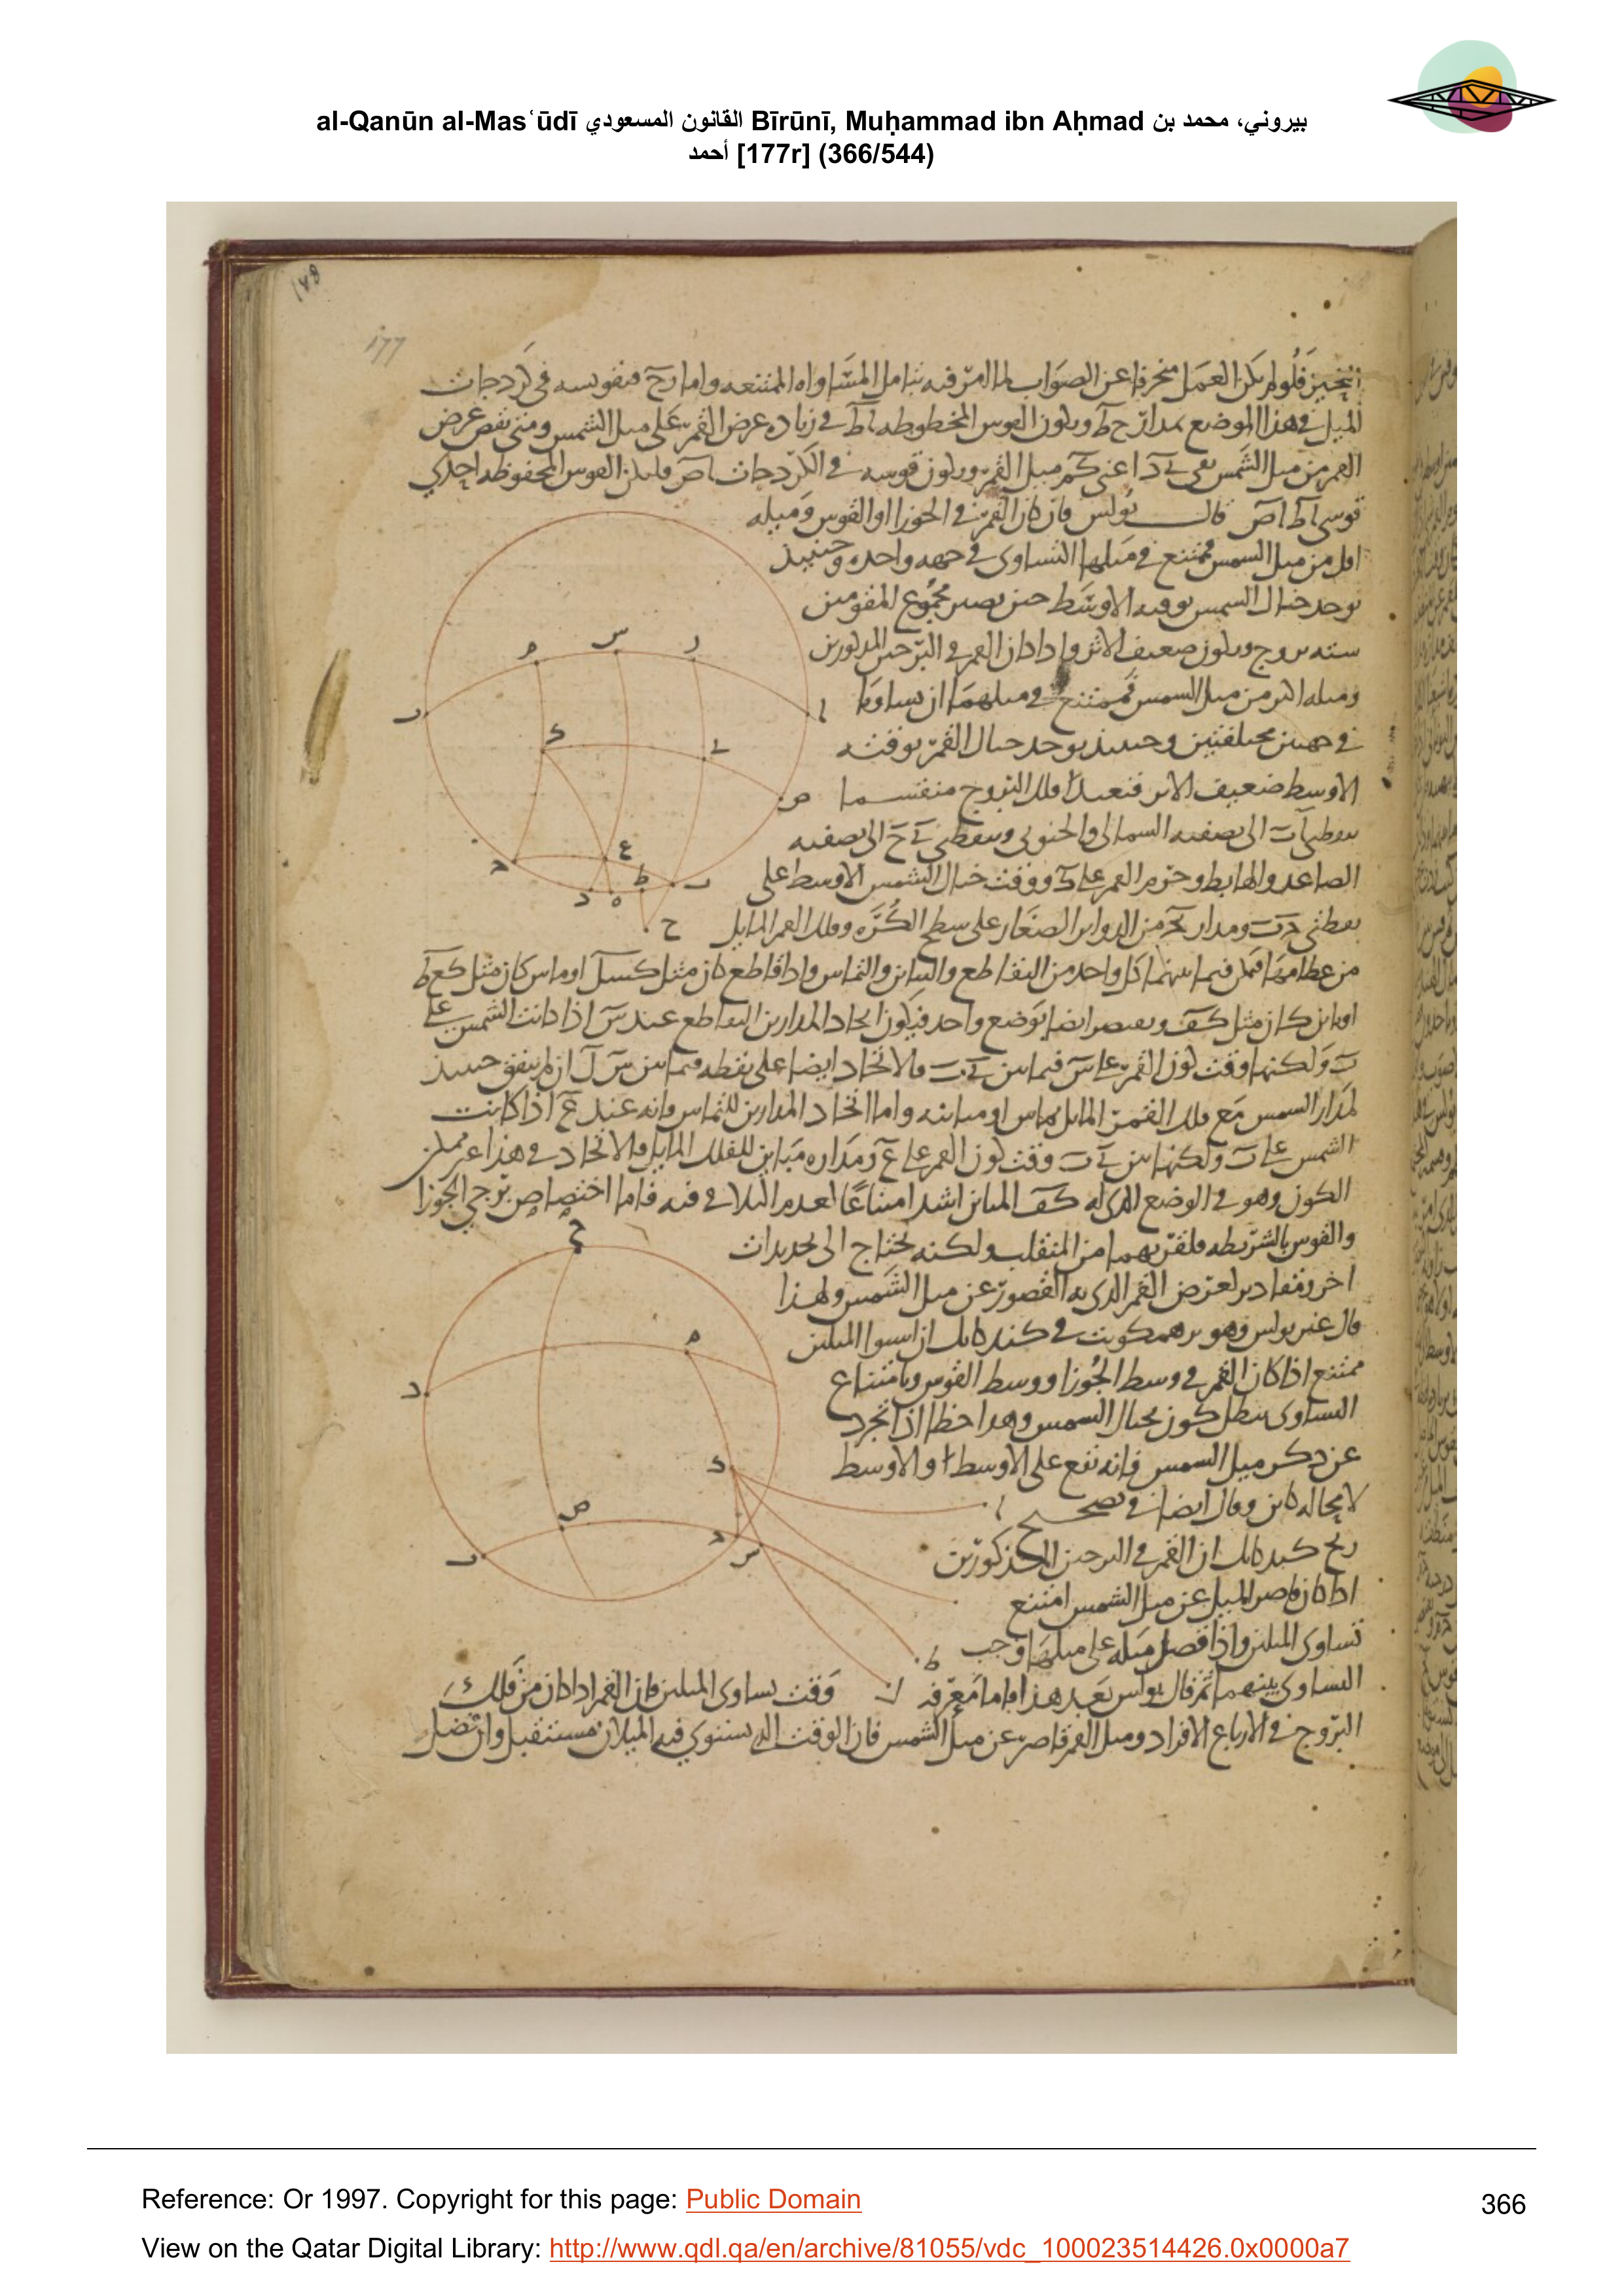 al-Qanūn al-Masʿūdī القانون المسعودي Bīrūnī, Muḥammad ibn Aḥmad بيروني، محمد بن
أحمد [177r] (366/544)
177
فلو لم يكن العمل منحرفا عن الصواب لما امر فيه بتامل المساواه الممتنعه واما فى كردجات
الميل وهذا الموضع بمدار ح ط ويكون القوس المحفوظه ا ط فى زياده عرض القمر على ميل الشمس ومتى نقص عرض
القمر من ميل الشمس بقى اعنى ميل القمر ويكون قوسه فى الكردجات ا ص فليكن القوس المحفوظه احدى
قوسى ا ط ا ص قال بولس فان كان القمر فى الجوزا او القوس وميله
اقل من ميل الشمس فممتنع فى ميلهما التساوى فى جهه واحده وحينئذ
يوجد خيال الشمس بوقته الاوسط حين يصير مجموع المقومين
سته بروج ويكون ضعيف الاثر واذا كان القمر فى البرجين المذكورين
وميله اكثر من ميل الشمس فممتنع فى ميلهما ان يتساويا
فى جهتين مختلفتين وحينئذ يوجد خيال القمر بوقته
الاوسط ضعيف الاثر فنعيد فلك البروج منقسما
بنقطتى ا ب الى نصفيه الشمالى والجنوبى وبنقطتى ى ح الى نصفيه
الصاعد والهابط وجرم القمر على ك ووقت خيال الشمس الاوسط على
بنقطتى ومدار من الدواير الصغار على سطح الكره وفلك القمر المايل
من عظامها فمكن فيما بينهما كل واحد من التقاطع والتباين والتماس واذا قاطع كان مثل ك س ل او ماس كان مثل ك ع ط
او باين كان مثل ك ف ويصير ايضا بوضع واحد فيكون اتحاد المدارين التقاطع عند س اذا كانت الشمس على
ب ولكنها وقت كون القمر على س فيما بين ى ب فالاتحاد ايضا على نقطه فيما بين س ل ان لم يتفق حينئذ
لمدار الشمس مع فلك القمر المايل تماس او مباينه واما اتحاد المدارين للتماس فانه عند ع اذا كانت
الشمس على ب ولكنها بين ى ب وقت كون القمر على ع ومداره مباين للفلك المايل فالاتحاد فى هذا غير ممكن
الكون وهو فى الوضع الذى له ك ف المباين اشد امتناعا لعدم التلاقى فيه فاما اختصاص برجى الجوزا
والقوس بالشريطه فلقربهما من المنقلب ولكنه يحتاج الى تحديدات
اخر ومقادير لعرض القمر الذى به القصور عن ميل الشمس ولهذا
قال غير بولس وهو برهمكوبت فى كندكاتك ان استوا الميلين
ممتنع اذا كان القمر فى وسط الجوزا ووسط القوس وبامتناع
التساوى يبطل كون خيال الشمس وهذا خطا اذا تجرد
عن ذكر ميل الشمس فانه يقع على الاوسط والاوسط
لا محاله كاين وقال ايضا فى تصحيح
زيج كندكاتك ان القمر فى البرجين المذكورين
اذا كان قاصر الميل عن ميل الشمس امتنع
تساوى الميلين واذا فضل ميله على ميلها وجب
التساوى بينهما ثم قال بولس بعد هذا اما معرفه وقت تساوى الميلين فان القمر اذا كان من فلك
البروج فى الارباع الافراد وميل القمر قاصر عن ميل الشمس فان الوقت الذى يستوى فيه الميلان مستقبل وان فضل
Reference: Or 1997. Copyright for this page: Public Domain
366
View on the Qatar Digital Library: http://www.qdl.qa/en/archive/81055/vdc_100023514426.0x0000a7